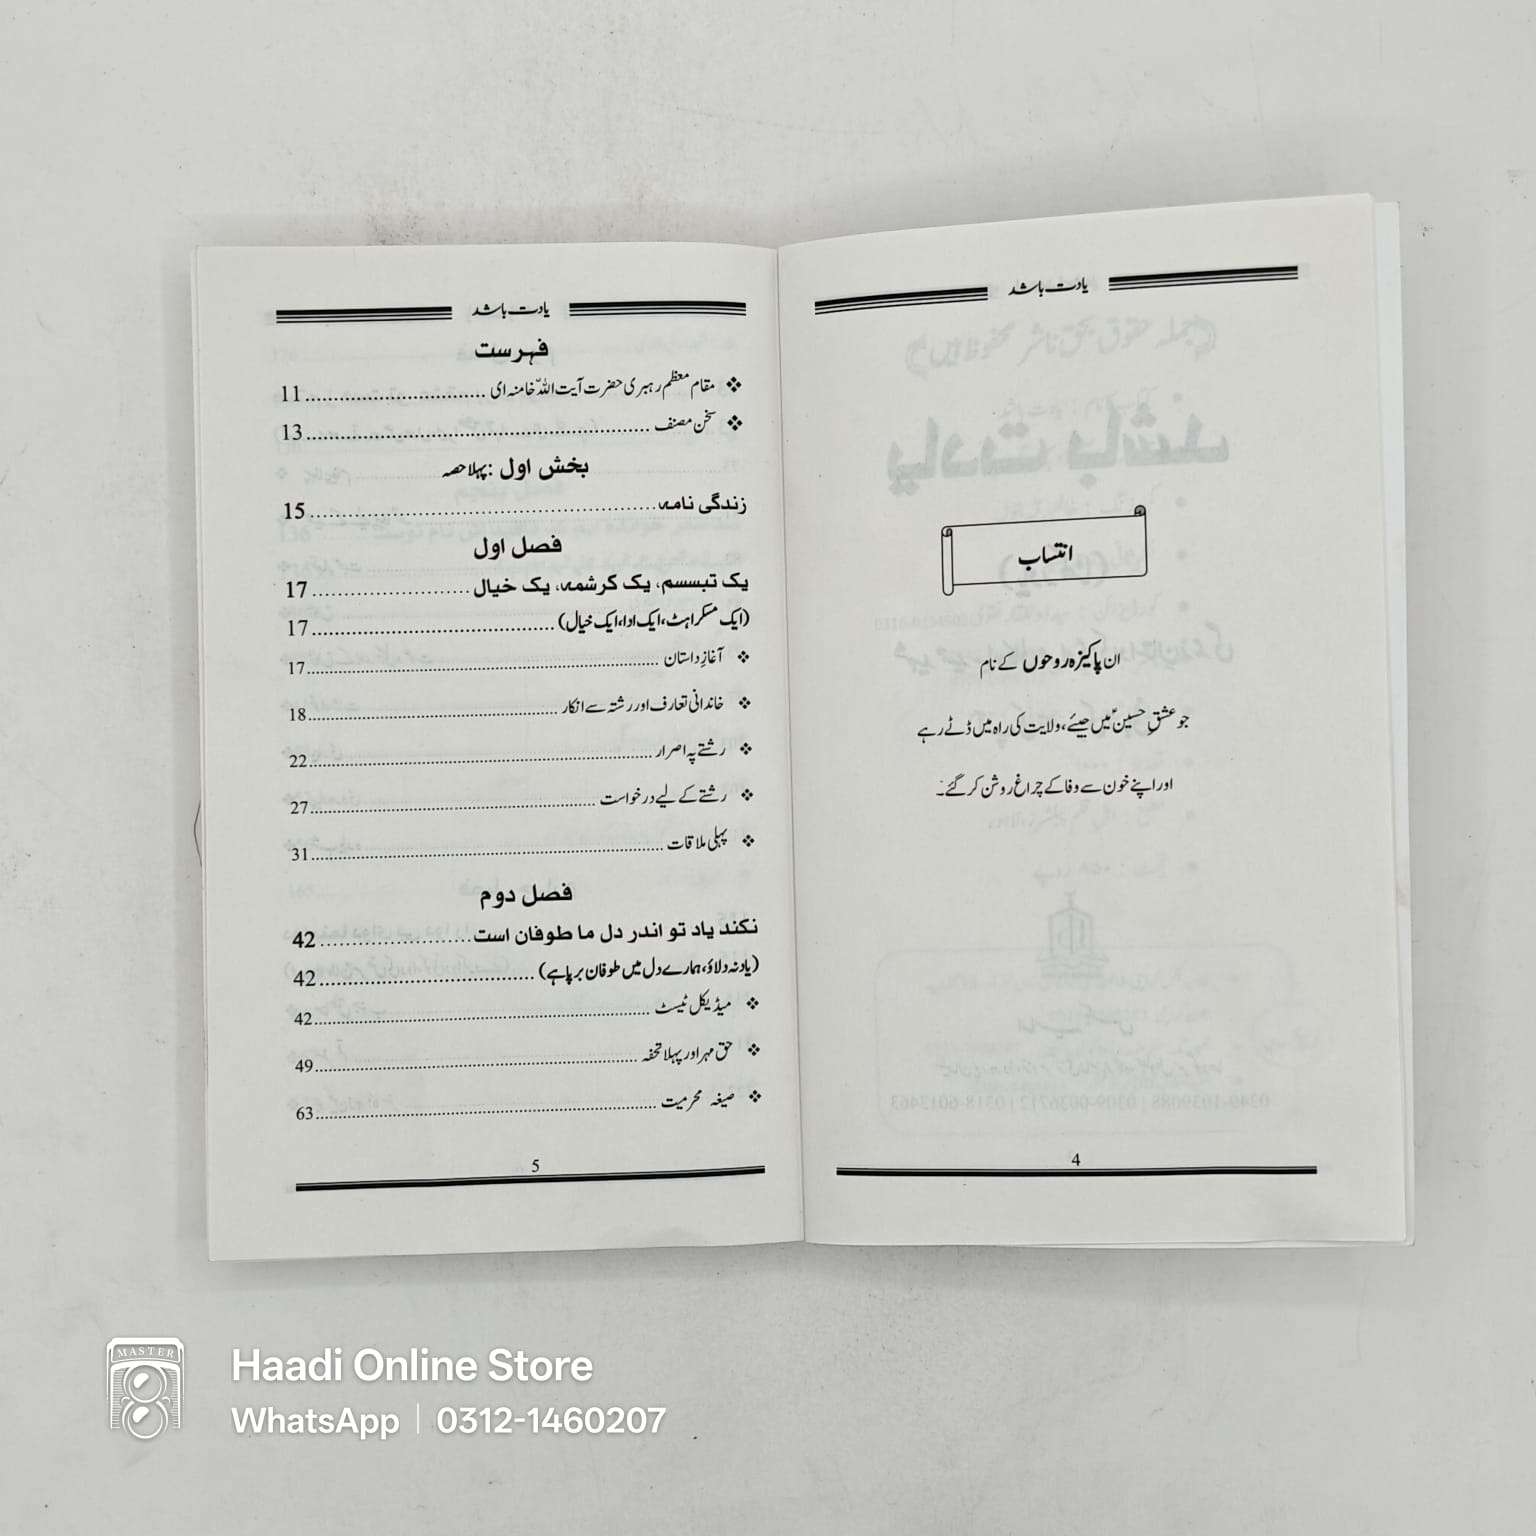 یادت باشد
انتساب
ان پاکیزہ روحوں کے نام
جو عشقِ حسینؑ میں جیئے، ولایت کی راہ میں ڈٹے رہے
اور اپنے خون سے وفا کے چراغ روشن کر گئے۔
4
یادت باشد
فہرست
❖ مقام معظم رہبری حضرت آیت اللہ خامنہ ای ........ 11
❖ سخن مصنف ........ 13
بخش اول: پہلا حصہ
زندگی نامہ ........ 15
فصل اول
یک تبسم، یک کرشمہ، یک خیال ........ 17
(ایک مسکراہٹ، ایک ادا، ایک خیال) ........ 17
❖ آغازِ داستان ........ 17
❖ خاندانی تعارف اور رشتہ سے انکار ........ 18
❖ رشتے پہ اصرار ........ 22
❖ رشتے کے لیے درخواست ........ 27
❖ پہلی ملاقات ........ 31
فصل دوم
نکند یاد تو اندر دل ما طوفان است ........ 42
(یاد نہ دلاؤ، ہمارے دل میں طوفان برپا ہے) ........ 42
❖ میڈیکل ٹیسٹ ........ 42
❖ حق مہر اور پہلا تحفہ ........ 49
❖ صیغہ محرمیت ........ 63
5
MASTER
Haadi Online Store
WhatsApp | 0312-1460207